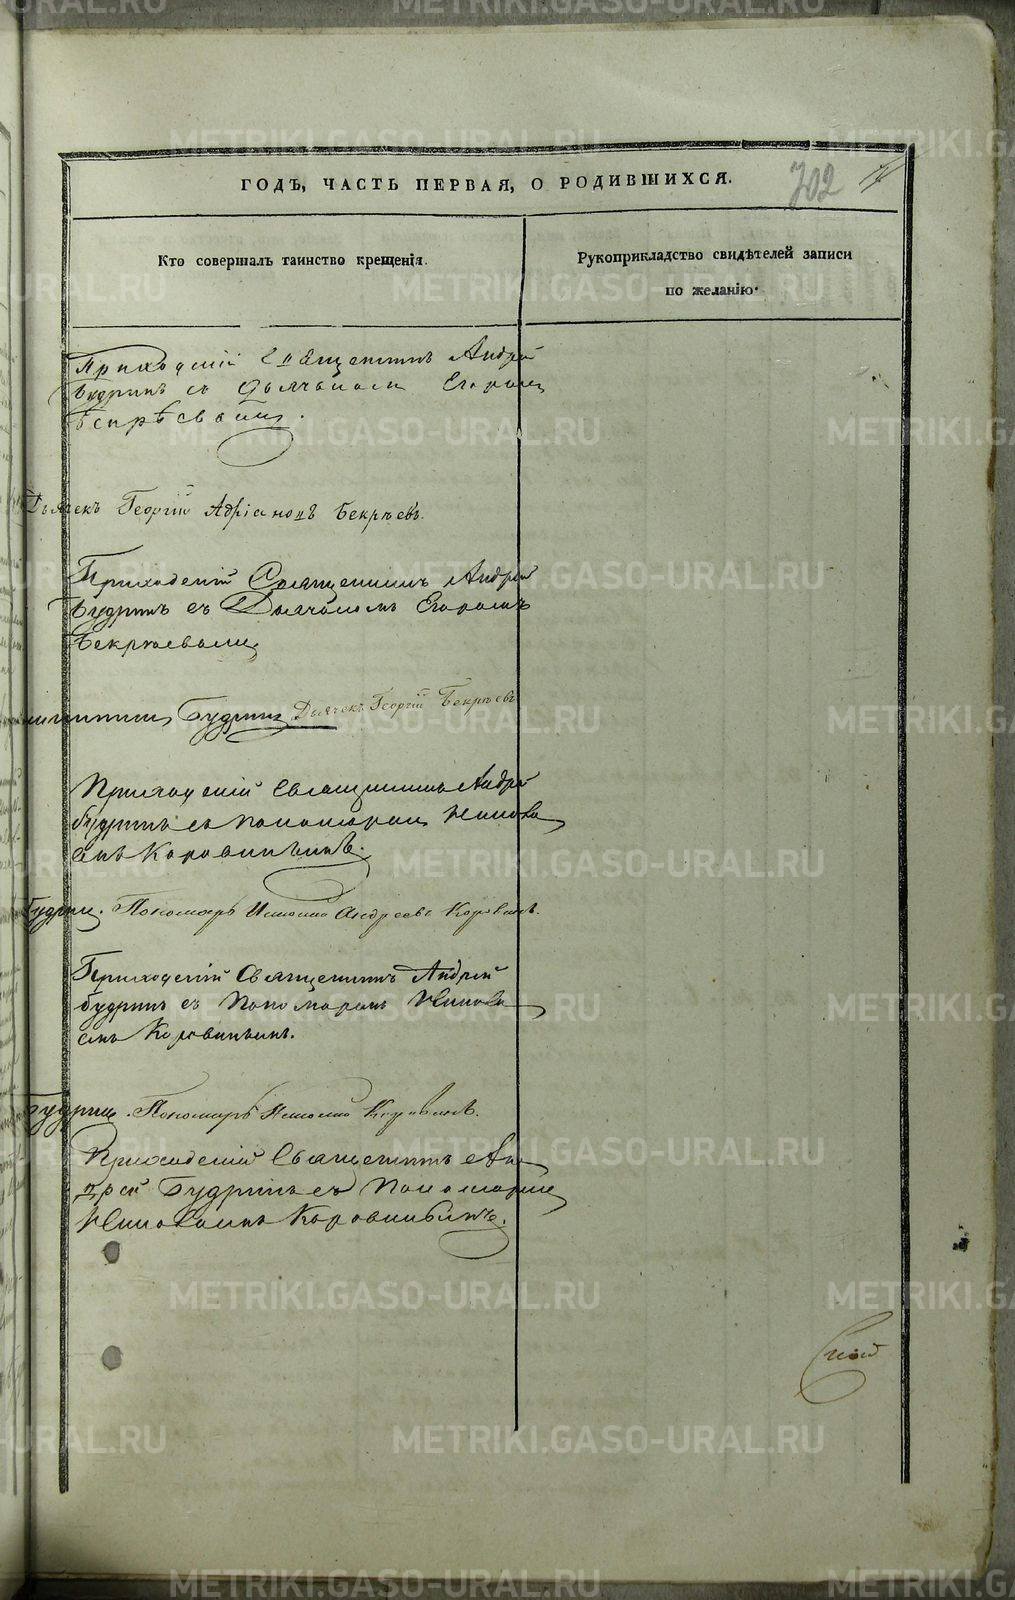 ГОДЪ, ЧАСТЬ ПЕРВАЯ, О РОДИВШИХСЯ.
702
Кто совершалъ таинство крещенія.
Рукоприкладство свидѣтелей записи
по желанію.
Приходскій Священникъ Андрей
Будринъ съ Дьячкомъ Егоромъ
Бекрѣевымъ.
Дьячекъ Георгій Адріановъ Бекрѣевъ.
Приходскій Священникъ Андрей
Будринъ съ Дьячкомъ Егоромъ
Бекрѣевымъ
Будринъ Дьячекъ Георгій Бекрѣевъ
Приходскій Священникъ Андрей
Будринъ съ Пономаремъ
Коровинымъ.
Будринъ. Пономарь Андреевъ Коровинъ.
Приходскій Священникъ Андрей
Будринъ съ Пономаремъ
Коровинымъ.
Будринъ. Пономарь Коровинъ.
Приходскій Священникъ Ан
дрей Будринъ съ Пономаремъ
Коровинымъ.
METRIKI.GASO-URAL.RU